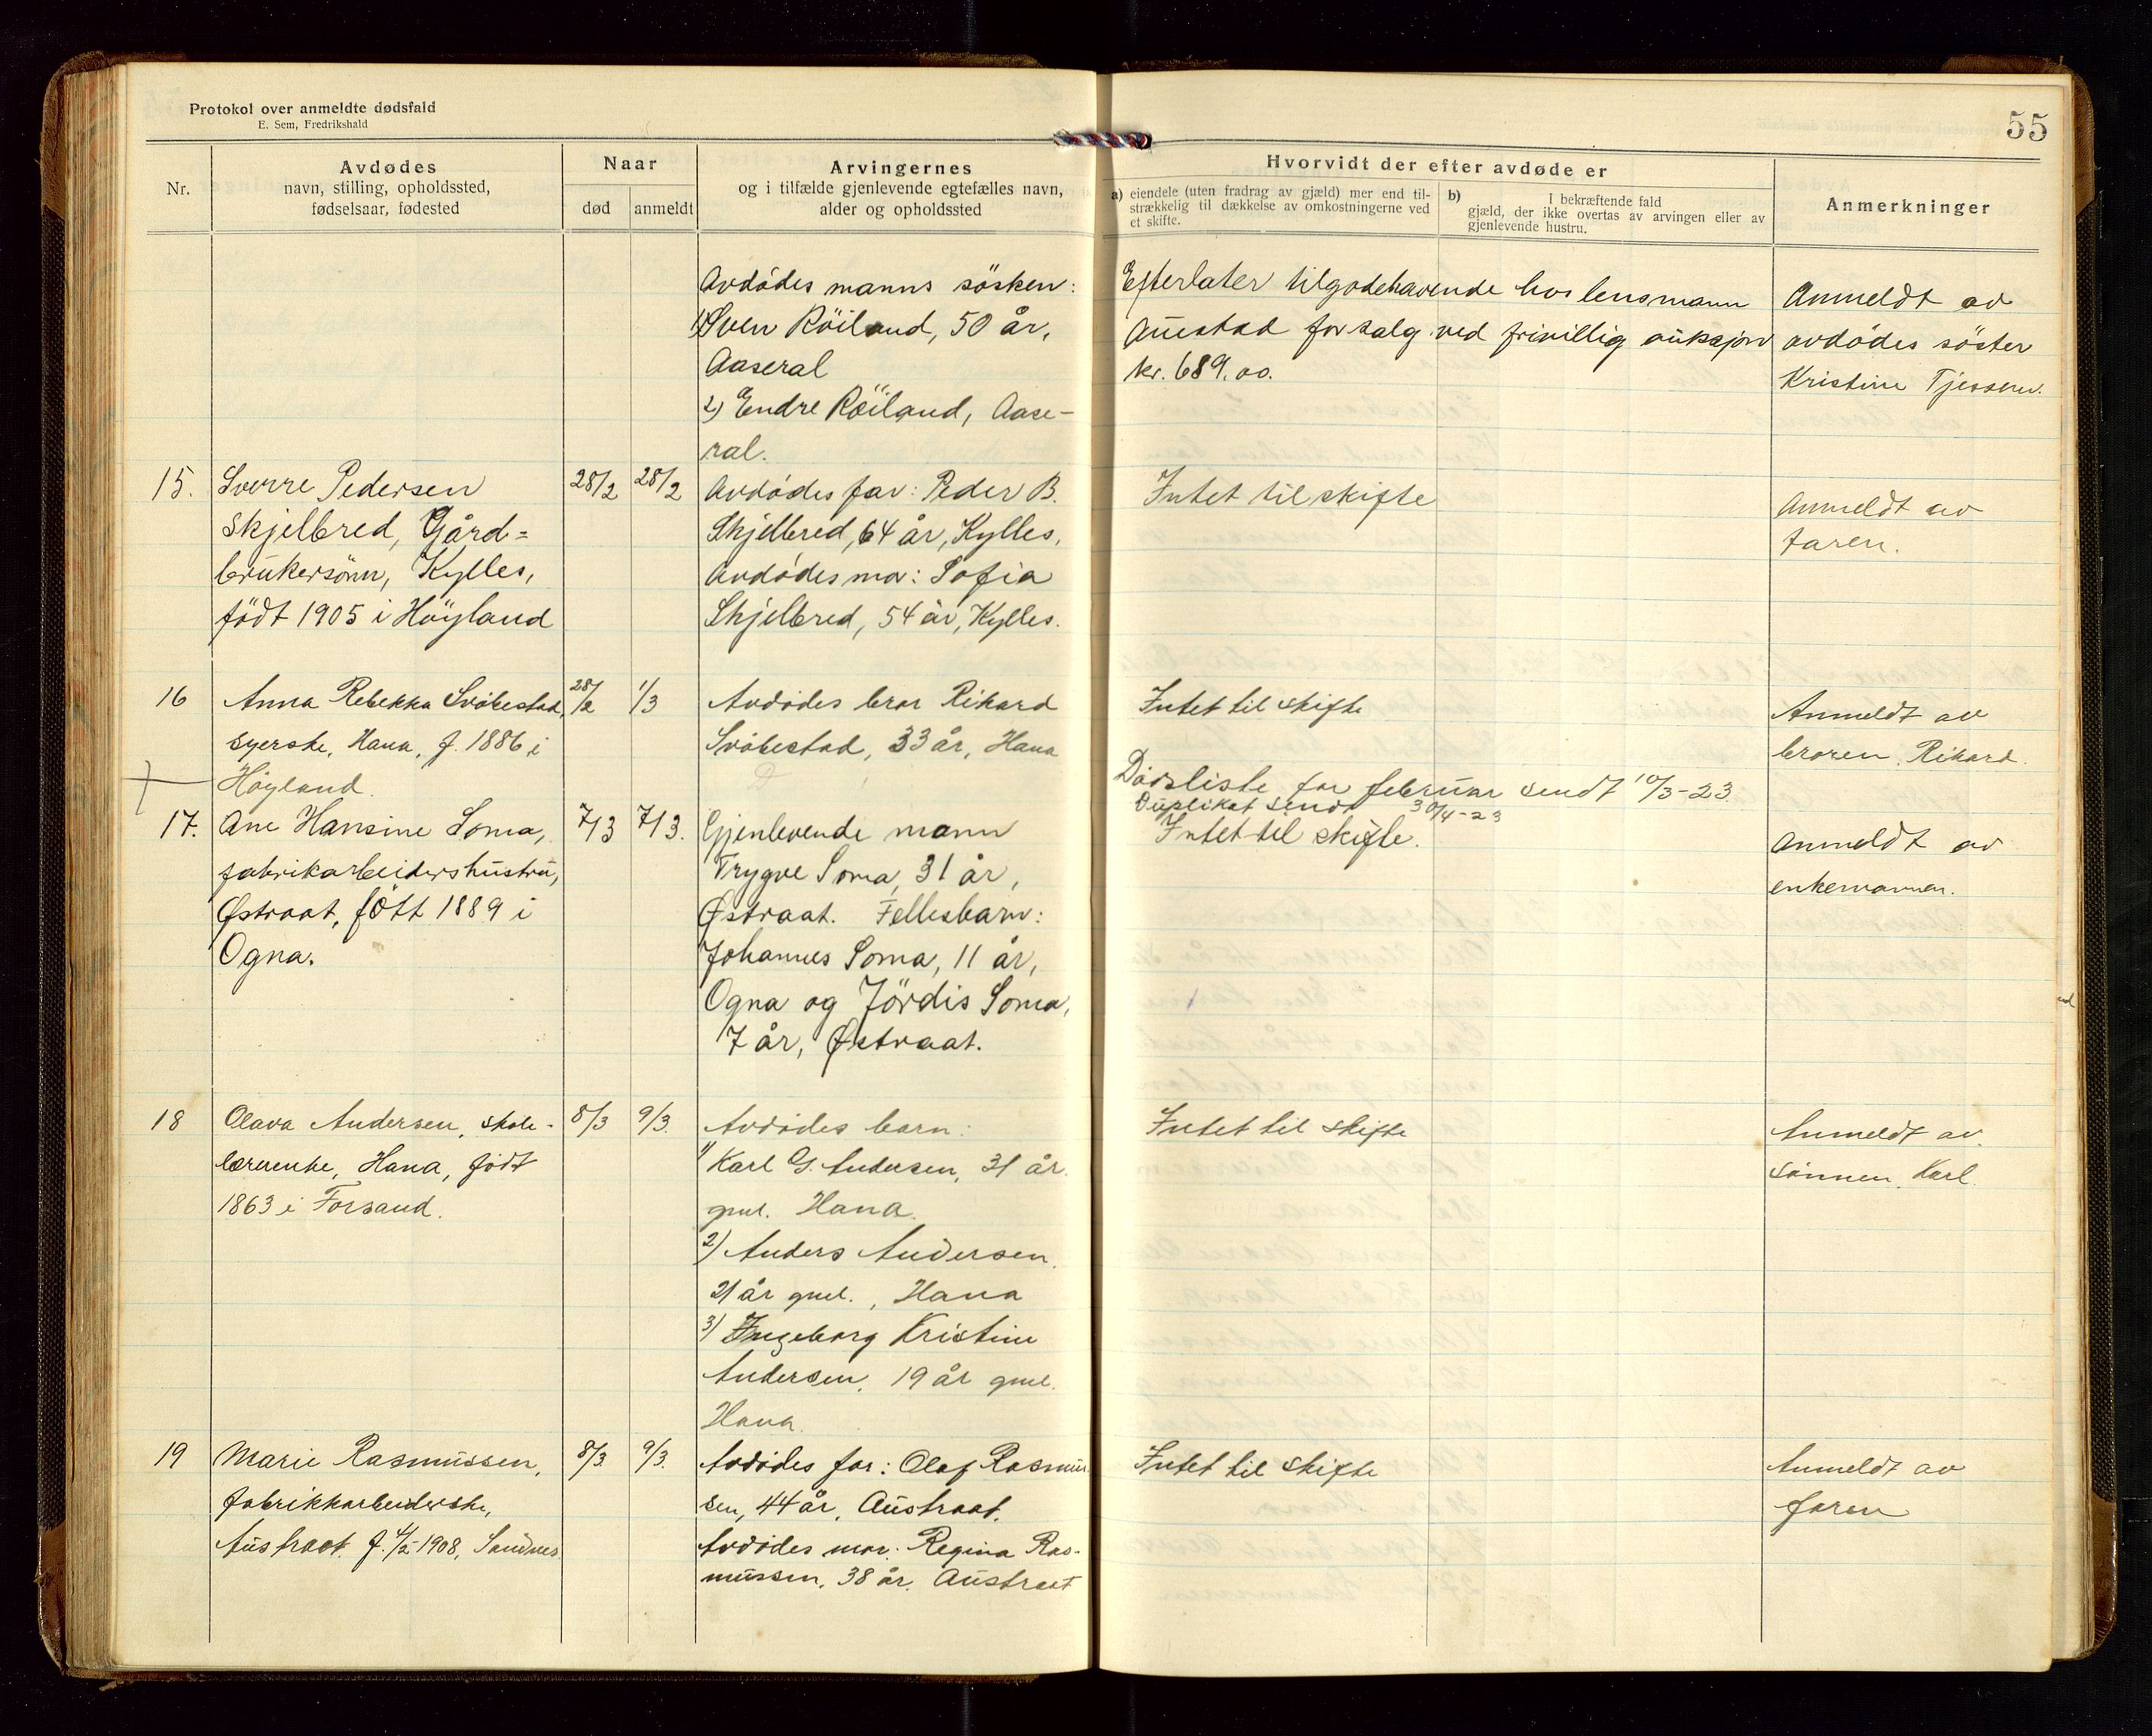 Protokol over anmeldte dødsfald
E. Sem, Fredrikshald
55
Nr.
Avdødes
navn, stilling, opholdssted,
fødselsaar, fødested
Naar
død
anmeldt
Arvingernes
og i tilfælde gjenlevende egtefælles navn,
alder og opholdssted
Hvorvidt der efter avdøde er
a) eiendele (uten fradrag av gjæld) mer end til-
strækkelig til dækkelse av omkostningerne ved
et skifte.
b) I bekræftende fald
gjæld, der ikke overtas av arvingen eller av
gjenlevende hustru.
Anmerkninger
Avdödes manns sösken:
1) Sven Röiland, 50 år,
Aaseral
2) Endre Röiland, Aase-
ral.
Efterlater tilgodehavende hos lensmann
Auestad for salg ved frivillig auksjon
kr. 689.00.
Anmeldt av
avdödes söster
Kristine Tjessem.
15.
Sverre Pedersen
Skjelbred, Gård=
brukersönn, Kylles,
födt 1905 i Höyland
28/2
28/2
Avdödes far: Peder B.
Skjelbred, 64 år, Kylles.
Avdödes mor: Sofia
Skjelbred, 54 år, Kylles.
Intet til skifte
Anmeldt av
faren.
16
Anna Rebekka Svöbestad,
syerske, Hana, f. 1886 i
Höyland.
28/2
1/3
Avdödes bror Rikard
Svöbestad, 33 år, Hana
Intet til skifte
Anmeldt av
broren, Rikard.
Dödsliste for februar sendt 10/3-23
Duplikat sendt 30/4-23
17.
Ane Hansine Soma,
fabrikarbeidershustru,
Østraat, fött 1889 i
Ogna.
7/3
7/3.
Gjenlevende mann
Trygve Soma, 31 år,
Østraat. Fellesbarn:
Johannes Soma, 11 år,
Ogna og Jördis Soma,
7 år, Østraat.
Intet til skifte.
Anmeldt av
enkemannen.
18
Olava Andersen, skole-
lærerenke, Hana, födt
1863 i Forsand.
8/3
9/3.
Avdödes barn:
1) Karl G. Andersen, 31 år
gml. Hana.
2) Anders Andersen,
21 år gml., Hana
3) Ingeborg Kristine
Andersen, 19 år gml.
Hana.
Intet til skifte
Anmeldt av
sönnen, Karl.
19
Marie Rasmussen,
fabrikkarbeiderske,
Austraat. f. 4/5 1908, Sandnes.
8/3
9/3.
Avdödes far: Olaf Rasmus-
sen, 44 år, Austraat.
Avdödes mor: Regina Ras-
mussen, 38 år, Austraat
Intet til skifte
Anmeldt av
faren